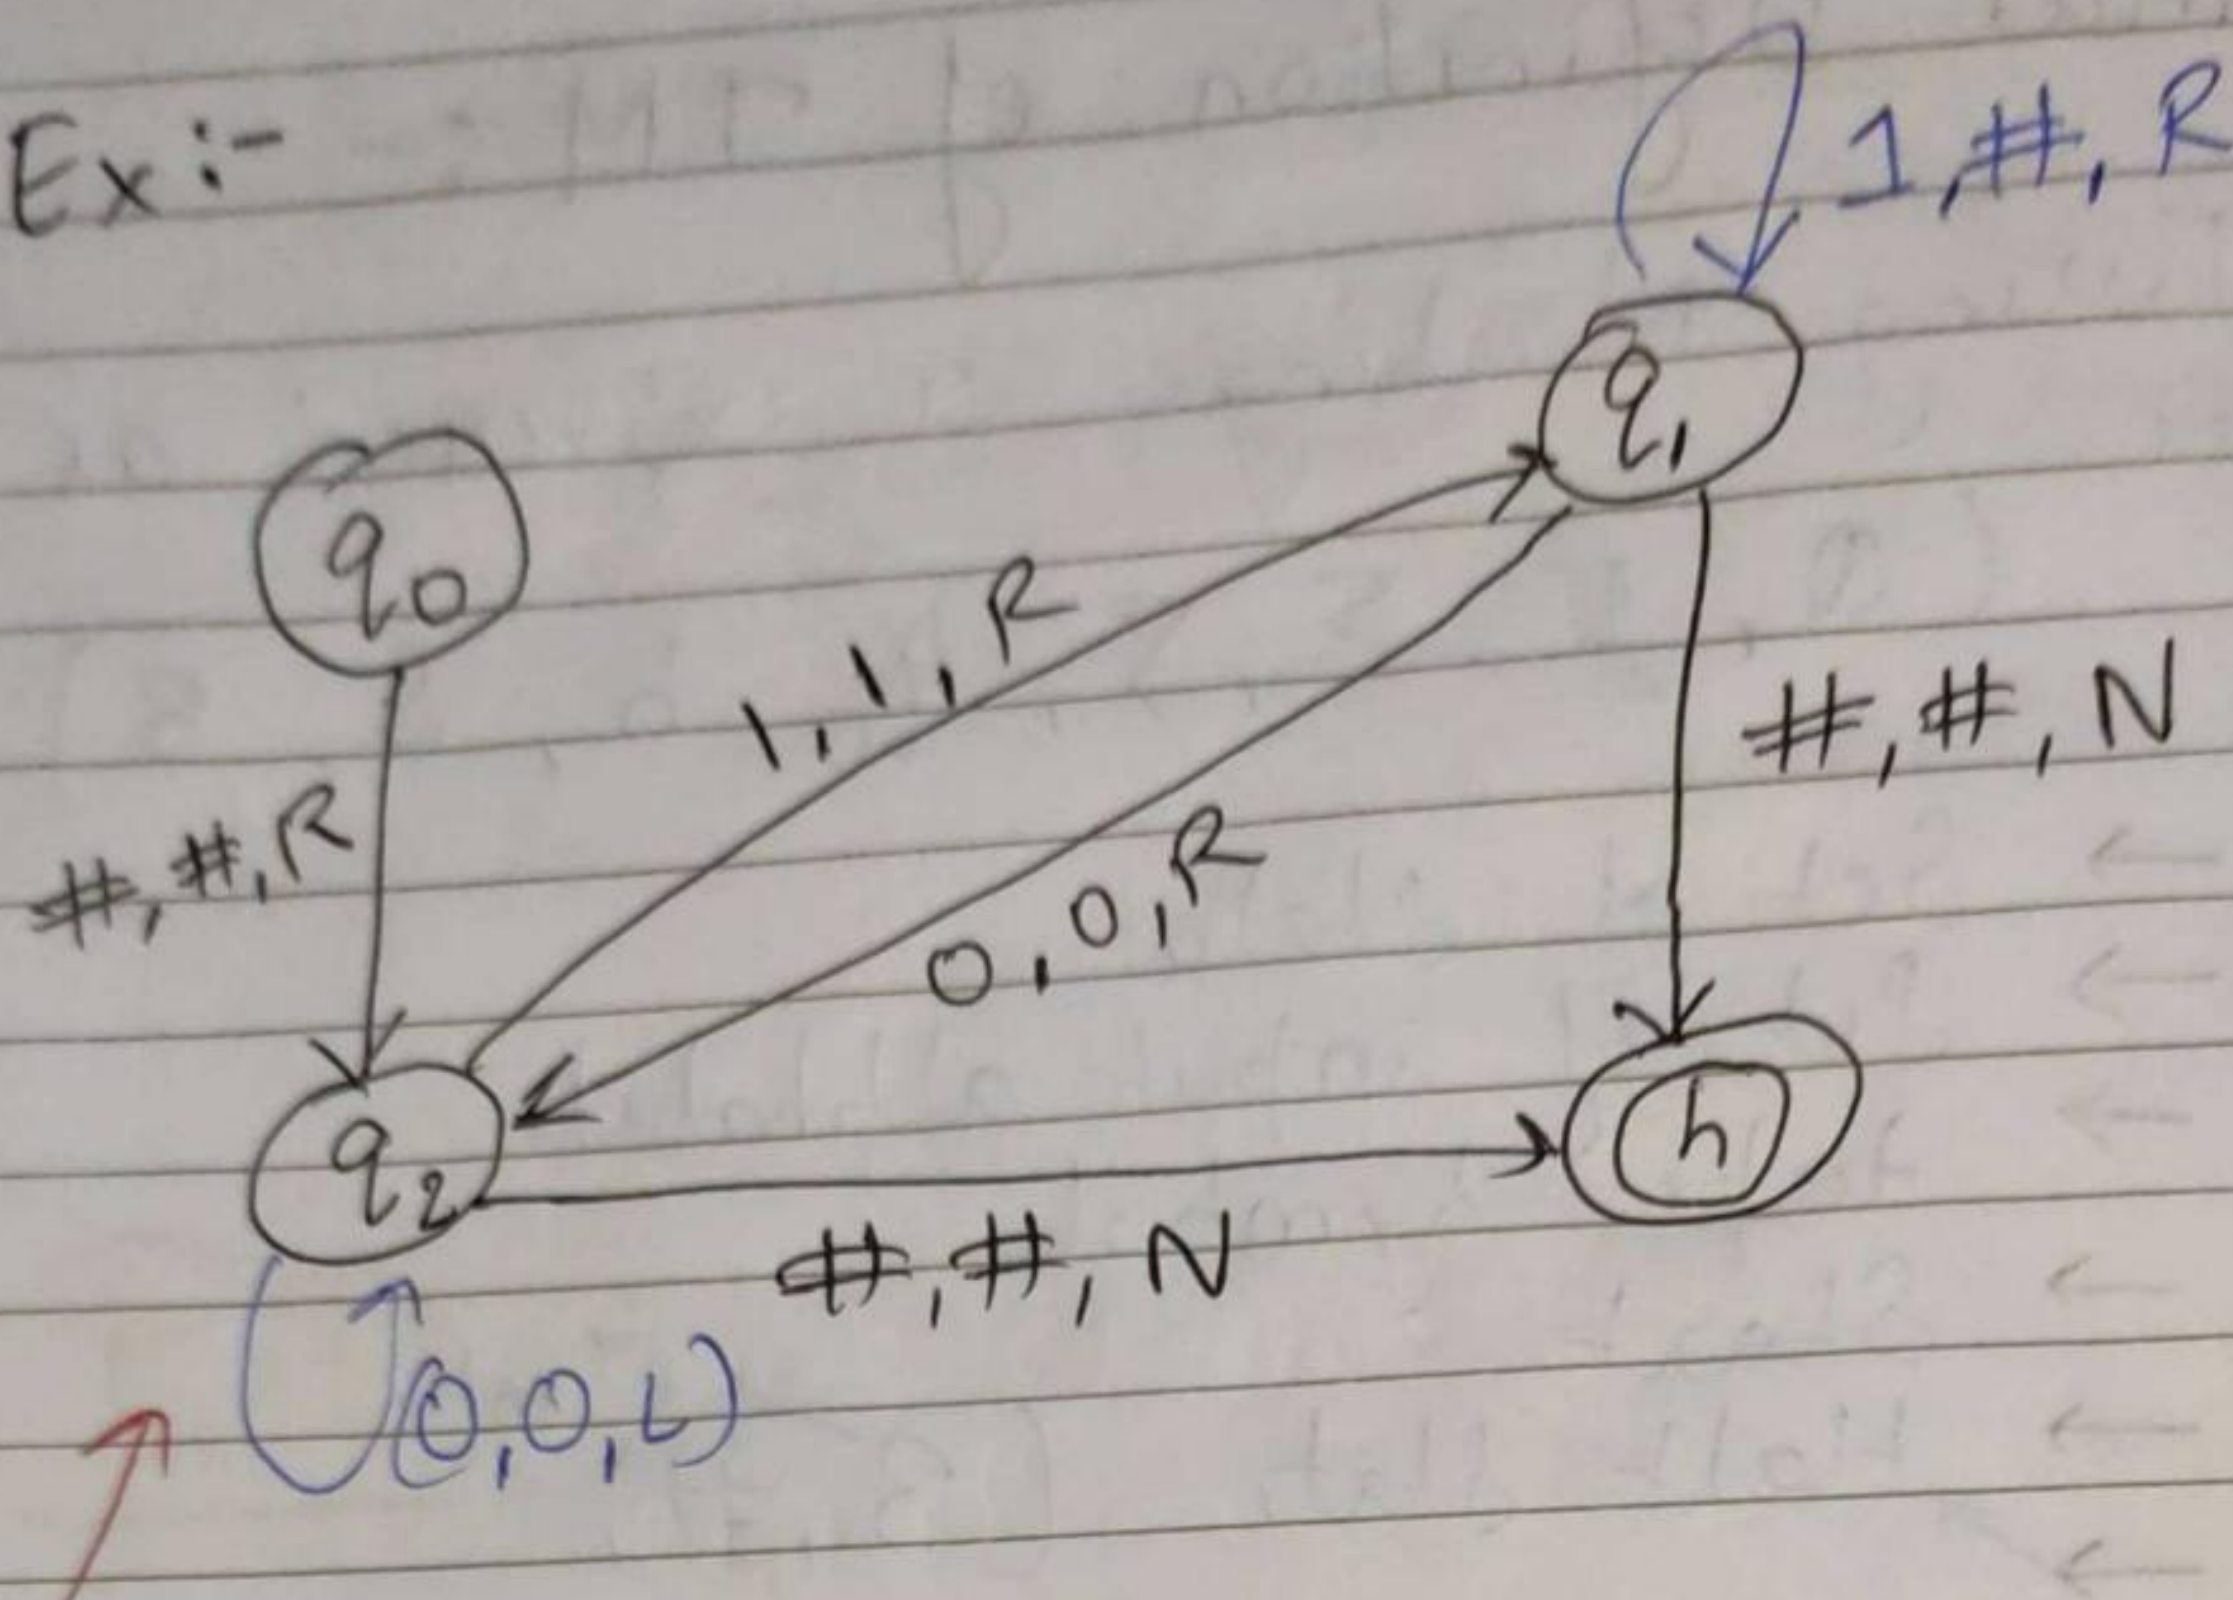 Ex:-
1,#,R
q1
q0
1,1,R
#,#,N
#,#,R
0,0,R
q2
h
#,#,N
(0,0,L)